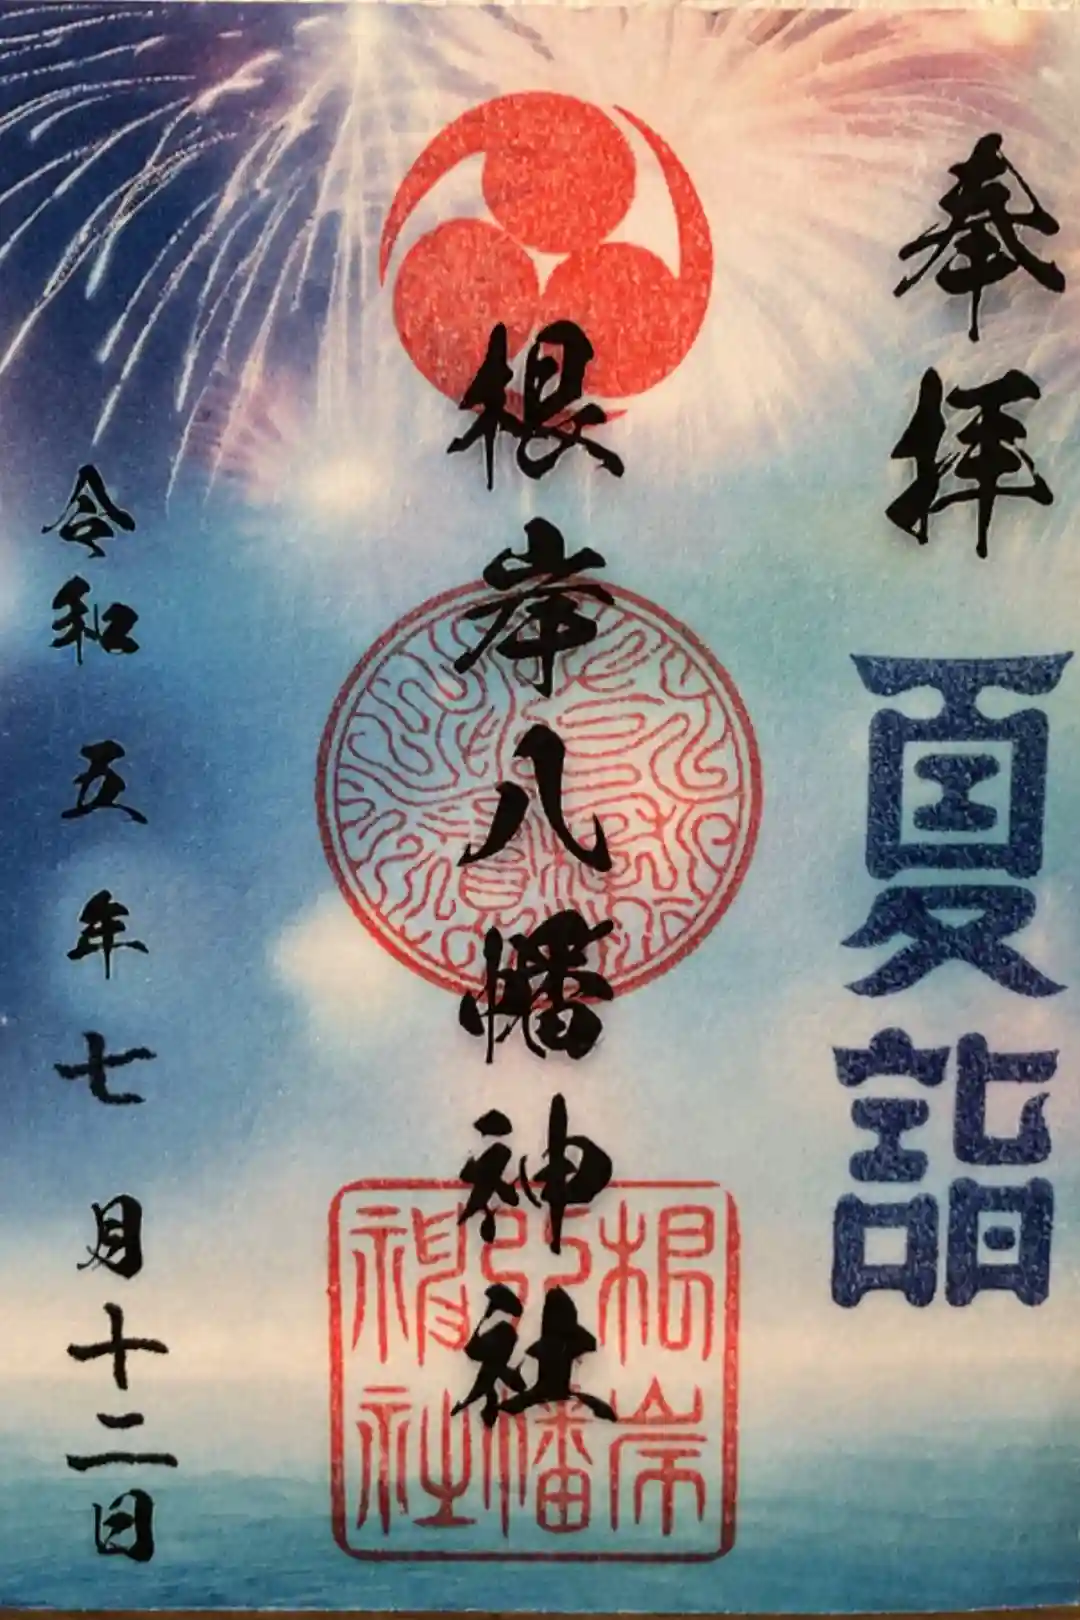 奉拝
夏詣
根岸八幡神社
根岸
八幡
神社
令和五年七月十二日